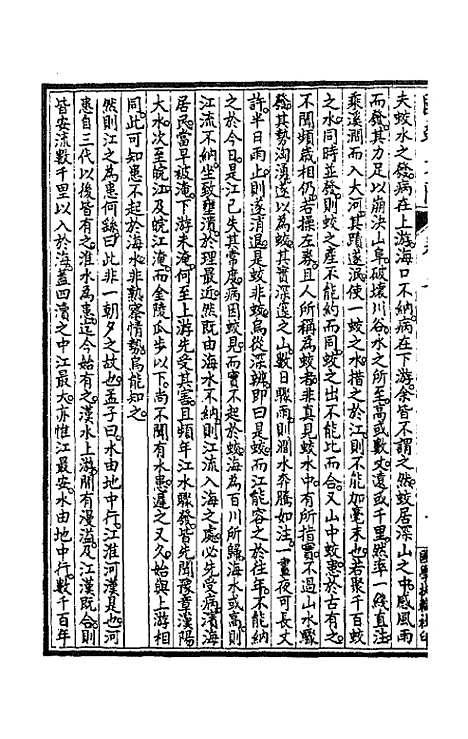 夫蛟水之發病在上游海口不納病在下游余皆不謂之然蛟居深山之中感風雨
而發其力足以崩決山阜破壞川谷水之所至高或數丈遠或千里然率一綫直注
乘溪澗而入大河其蹟遂泯使一蛟之水措之於江則不能加毫末也若聚千百蛟
之水同時並發則蛟之產不能約而同蛟之出不能比而合又山中蛟患於古有之
不聞頻歲相仍若操左券且人所稱為蛟者非真見蛟水中有所指實不過山水驟
發其勢洶湧遂以為蛟其實深邃之山數日驟雨則澗水奔騰如注一晝夜可長丈
許半日雨止則遂消退是蛟非蛟烏從深辨即曰是蛟而江能容之於往年不能納
之於今日是江已失其常度病因蛟見而實不起於蛟海為百川所歸海水或高則
江流不納坐致壅潰於理最近然既由海水不納則江流入海之處必先受病濱海
居民當早被淹下游未淹何至上游先受其害且頻年江水驟發皆先聞豫章漢陽
大水次至皖江及皖江淹而金陵瓜步以下尚不聞有水患遲之又久始與上游相
同此可知患不起於海水非熟察情勢烏能知之
然則江之為患何繇曰此非一朝夕之故也孟子曰水由地中行江淮河漢是也河
患自三代以後皆有之淮水為患迄今始有之漢水上游間有漫溢及江漢既合則
皆安流數千里以入於海蓋四瀆之中江最大亦惟江最安水由地中行數千百年